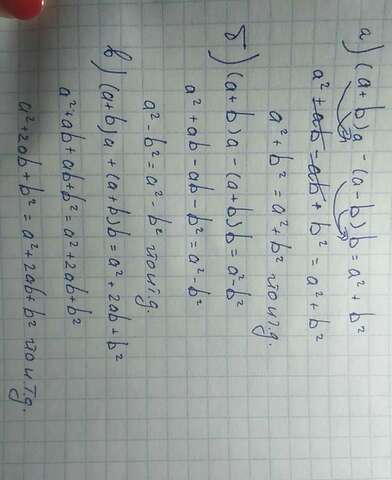 а) (a+b)a - (a-b)b = a² + b²
a² + ab - ab + b² = a² + b²
a² + b² = a² + b² что и т.д.
б) (a+b)a - (a+b)b = a² - b²
a² + ab - ab - b² = a² - b²
a² - b² = a² - b² что и т.д.
в) (a+b)a + (a+b)b = a² + 2ab + b²
a² + ab + ab + b² = a² + 2ab + b²
a² + 2ab + b² = a² + 2ab + b² что и т.д.